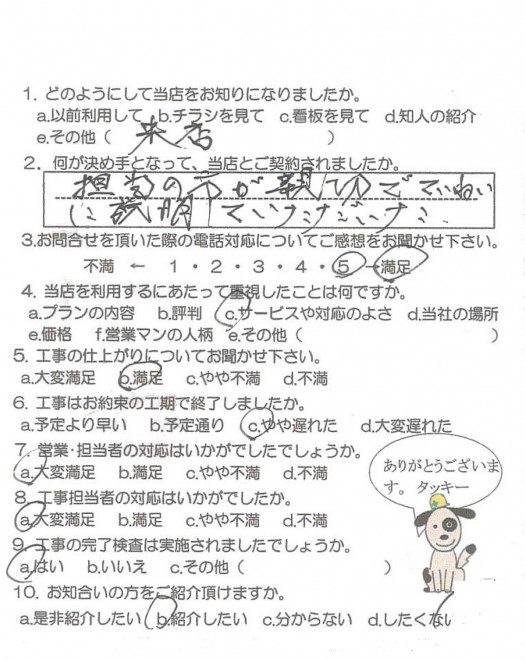 1. どのようにして当店をお知りになりましたか。
a.以前利用して b.チラシを見て c.看板を見て d.知人の紹介
e.その他( 来店 )
2. 何が決め手となって、当店とご契約されましたか。
担当の方が親切でていねい
に説明していただいた
3.お問合せを頂いた際の電話対応についてご感想をお聞かせ下さい。
不満 ← 1・2・3・4・5 →満足
4. 当店を利用するにあたって重視したことは何ですか。
a.プランの内容 b.評判 c.サービスや対応のよさ d.当社の場所
e.価格 f.営業マンの人柄 e.その他( )
5. 工事の仕上がりについてお聞かせ下さい。
a.大変満足 b.満足 c.やや不満 d.不満
6. 工事はお約束の工期で終了しましたか。
a.予定より早い b.予定通り c.やや遅れた d.大変遅れた
7. 営業・担当者の対応はいかがでしたでしょうか。
a.大変満足 b.満足 c.やや不満 d.不満
8. 工事担当者の対応はいかがでしたか。
a.大変満足 b.満足 c.やや不満 d.不満
9. 工事の完了検査は実施されましたでしょうか。
a.はい b.いいえ c.その他( )
10. お知合いの方をご紹介頂けますか。
a.是非紹介したい b.紹介したい c.分からない d.したくない
ありがとうございま
す。 タッキー